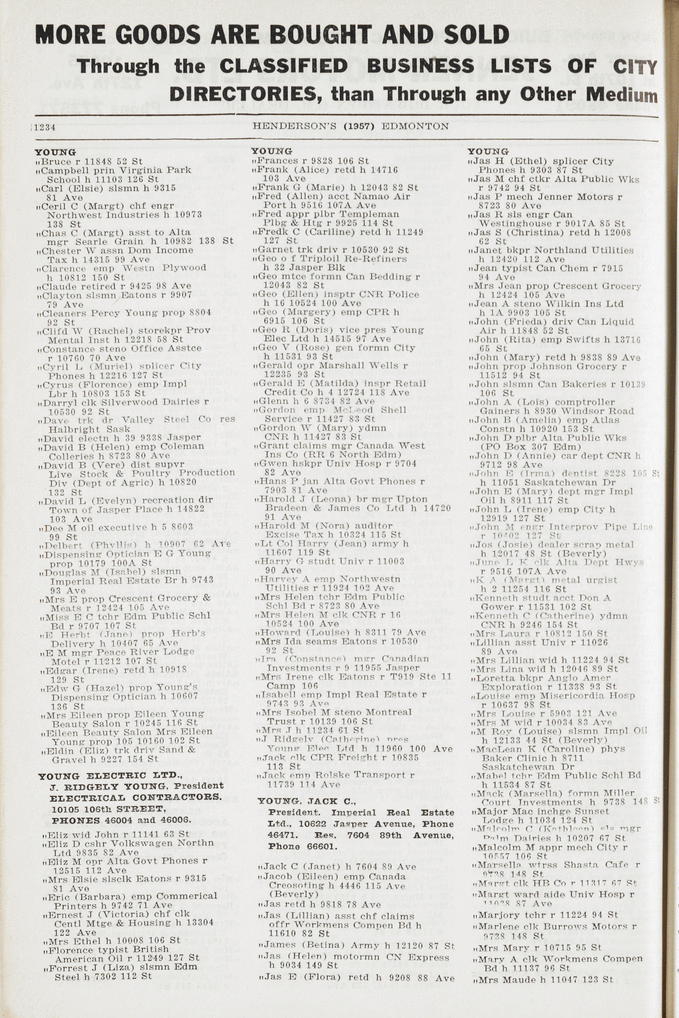 MORE GOODS ARE BOUGHT AND SOLD
Through the CLASSIFIED BUSINESS LISTS OF CITY
DIRECTORIES, than Through any Other Medium
1234
HENDERSON'S (1957) EDMONTON
YOUNG
„Bruce r 11848 52 St
„Campbell prin Virginia Park
School h 11103 126 St
„Carl (Elsie) slsmn h 9315
81 Ave
„Ceril C (Margt) chf engr
Northwest Industries h 10973
138 St
„Chas C (Margt) asst to Alta
mgr Searle Grain h 10982 138 St
„Chester W assn Dom Income
Tax h 14315 99 Ave
„Clarence emp Westn Plywood
h 10812 150 St
„Claude retired r 9425 98 Ave
„Clayton slsmn Eatons r 9907
79 Ave
„Cleaners Percy Young prop 8804
92 St
„Clifd W (Rachel) storekpr Prov
Mental Inst h 12218 58 St
„Constance steno Office Asstce
r 10760 70 Ave
„Cyril L (Muriel) splicer City
Phones h 12216 127 St
„Cyrus (Florence) emp Impl
Lbr h 10803 153 St
„Darryl clk Silverwood Dairies r
10530 92 St
„Dave trk dr Valley Steel Co res
Halbright Sask
„David electn h 39 9338 Jasper
„David B (Helen) emp Coleman
Colleries h 8723 80 Ave
„David B (Vere) dist supvr
Live Stock & Poultry Production
Div (Dept of Agric) h 10820
132 St
„David L (Evelyn) recreation dir
Town of Jasper Place h 14822
103 Ave
„Dee M oil executive h 5 8603
99 St
„Delbert (Phyllis) h 10907 62 Ave
„Dispensing Optician E G Young
prop 10179 100A St
„Douglas M (Isabel) slsmn
Imperial Real Estate Br h 9743
93 Ave
„Mrs E prop Crescent Grocery &
Meats r 12424 105 Ave
„Miss E C tchr Edm Public Schl
Bd r 9707 107 St
„E Herbt (Jane) prop Herb's
Delivery h 10407 65 Ave
„E M mgr Peace River Lodge
Motel r 11212 107 St
„Edgar (Irene) retd h 10918
129 St
„Edw G (Hazel) prop Young's
Dispensing Optician h 10607
136 St
„Mrs Eileen prop Eileen Young
Beauty Salon r 10245 116 St
„Eileen Beauty Salon Mrs Eileen
Young prop 105 10160 102 St
„Eldin (Eliz) trk driv Sand &
Gravel h 9227 154 St
YOUNG ELECTRIC LTD.,
J. RIDGELY YOUNG, President
ELECTRICAL CONTRACTORS,
10105 106th STREET,
PHONES 46004 and 46006.
„Eliz wid John r 11141 63 St
„Eliz D cshr Volkswagen Northn
Ltd 9835 82 Ave
„Eliz M opr Alta Govt Phones r
12515 112 Ave
„Mrs Elsie slsclk Eatons r 9315
81 Ave
„Eric (Barbara) emp Commerical
Printers h 9742 71 Ave
„Ernest J (Victoria) chf clk
Centl Mtge & Housing h 13304
122 Ave
„Mrs Ethel h 10008 106 St
„Florence typist British
American Oil r 11249 127 St
„Forrest J (Liza) slsmn Edm
Steel h 7302 112 St
YOUNG
„Frances r 9828 106 St
„Frank (Alice) retd h 14716
103 Ave
„Frank G (Marie) h 12043 82 St
„Fred (Allen) acct Namao Air
Port h 9516 107A Ave
„Fred appr plbr Templeman
Plbg & Htg r 9925 114 St
„Fredk C (Cariline) retd h 11249
127 St
„Garnet trk driv r 10530 92 St
„Geo o f Triploil Re-Refiners
h 32 Jasper Blk
„Geo mtce formn Can Bedding r
12043 82 St
„Geo (Ellen) insptr CNR Police
h 16 10524 100 Ave
„Geo (Margery) emp CPR h
6915 106 St
„Geo R (Doris) vice pres Young
Elec Ltd h 14515 97 Ave
„Geo V (Rose) gen formn City
h 11531 93 St
„Gerald opr Marshall Wells r
12235 93 St
„Gerald E (Matilda) inspr Retail
Credit Co h 4 12724 118 Ave
„Glenn h 6 8734 82 Ave
„Gordon emp McLeod Shell
Service r 11427 83 St
„Gordon W (Mary) ydmn
CNR h 11427 83 St
„Grant claims mgr Canada West
Ins Co (RR 6 North Edm)
„Gwen hskpr Univ Hosp r 9704
82 Ave
„Hans P jan Alta Govt Phones r
7903 81 Ave
„Harold J (Leona) br mgr Upton
Bradeen & James Co Ltd h 14720
91 Ave
„Harold M (Nora) auditor
Excise Tax h 10324 115 St
„Lt Col Harry (Jean) army h
11607 119 St
„Harry G studt Univ r 11003
90 Ave
„Harvey A emp Northwestn
Utilities r 11924 102 Ave
„Mrs Helen tchr Edm Public
Schl Bd r 8723 80 Ave
„Mrs Helen M clk CNR r 16
10524 100 Ave
„Howard (Louise) h 8311 79 Ave
„Mrs Ida seams Eatons r 10530
92 St
„Ira (Constance) mgr Canadian
Investments r 9 11955 Jasper
„Mrs Irene clk Eatons r T919 Ste 11
Camp 106
„Isabell emp Impl Real Estate r
9743 93 Ave
„Mrs Isobel M steno Montreal
Trust r 10139 106 St
„Mrs J h 11234 61 St
„J Ridgely (Catherine) pres
Young Elec Ltd h 11960 100 Ave
„Jack clk CPR Freight r 10835
113 St
„Jack emp Rolske Transport r
11739 114 Ave
YOUNG, JACK C.,
President, Imperial Real Estate
Ltd., 10622 Jasper Avenue, Phone
46471. Res. 7604 89th Avenue,
Phone 66601.
„Jack C (Janet) h 7604 89 Ave
„Jacob (Eileen) emp Canada
Creosoting h 4446 115 Ave
(Beverly)
„Jas retd h 9818 78 Ave
„Jas (Lillian) asst chf claims
offr Workmens Compen Bd h
11610 82 St
„James (Betina) Army h 12120 87 St
„Jas (Helen) motormn CN Express
h 9034 149 St
„Jas E (Flora) retd h 9208 88 Ave
YOUNG
„Jas H (Ethel) splicer City
Phones h 9303 87 St
„Jas M chf ctkr Alta Public Wks
r 9742 94 St
„Jas P mech Jenner Motors r
8723 80 Ave
„Jas R sls engr Can
Westinghouse r 9017A 85 St
„Jas S (Christina) retd h 12008
62 St
„Janet bkpr Northland Utilities
h 12420 112 Ave
„Jean typist Can Chem r 7915
94 Ave
„Mrs Jean prop Crescent Grocery
h 12424 105 Ave
„Jean A steno Wilkin Ins Ltd
h 1A 9903 105 St
„John (Frieda) driv Can Liquid
Air h 11848 52 St
„John (Rita) emp Swifts h 13716
65 St
„John (Mary) retd h 9838 89 Ave
„John prop Johnson Grocery r
11512 94 St
„John slsmn Can Bakeries r 10139
106 St
„John A (Lois) comptroller
Gainers h 8930 Windsor Road
„John B (Amelia) emp Atlas
Constn h 10920 153 St
„John D plbr Alta Public Wks
(PO Box 307 Edm)
„John D (Annie) car dept CNR h
9712 98 Ave
„John E (Irma) dentist 8228 105 St
h 11051 Saskatchewan Dr
„John E (Mary) dept mgr Impl
Oil h 8911 117 St
„John L (Irene) emp City h
12919 127 St
„John M engr Interprov Pipe Line
r 10502 127 St
„Jos (Josie) dealer scrap metal
h 12017 48 St (Beverly)
„June L K clk Alta Dept Hwys
r 9516 107A Ave
„K A (Margt) metal urgist
h 2 11254 116 St
„Kenneth studt acct Don A
Gower r 11531 102 St
„Kenneth C (Catherine) ydmn
CNR h 9246 154 St
„Mrs Laura r 10812 150 St
„Lillian asst Univ r 11026
89 Ave
„Mrs Lillian wid h 11224 94 St
„Mrs Lina wid h 12046 89 St
„Loretta bkpr Anglo Amer
Exploration r 11338 93 St
„Louise emp Misericordia Hosp
r 10637 98 St
„Mrs Louise r 5903 121 Ave
„Mrs M wid r 10034 83 Ave
„M Roy (Louise) slsmn Impl Oil
h 12133 44 St (Beverly)
„MacLean K (Caroline) phys
Baker Clinic h 8711
Saskatchewan Dr
„Mabel tchr Edm Public Schl Bd
h 11534 87 St
„Mack (Marsella) formn Miller
Court Investments h 9738 148 St
„Major Mac inchge Sunset
Lodge h 11034 124 St
„Malcolm C (Kathleen) sls mgr
Palm Dairies h 10207 67 St
„Malcolm M appr mech City r
10557 106 St
„Marsella wtrss Shasta Cafe r
9738 148 St
„Margt clk HB Co r 11317 67 St
„Margt ward aide Univ Hosp r
11028 87 Ave
„Marjory tchr r 11224 94 St
„Marlene clk Burrows Motors r
9738 148 St
„Mrs Mary r 10715 95 St
„Mary A clk Workmens Compen
Bd h 11137 96 St
„Mrs Maude h 11047 123 St